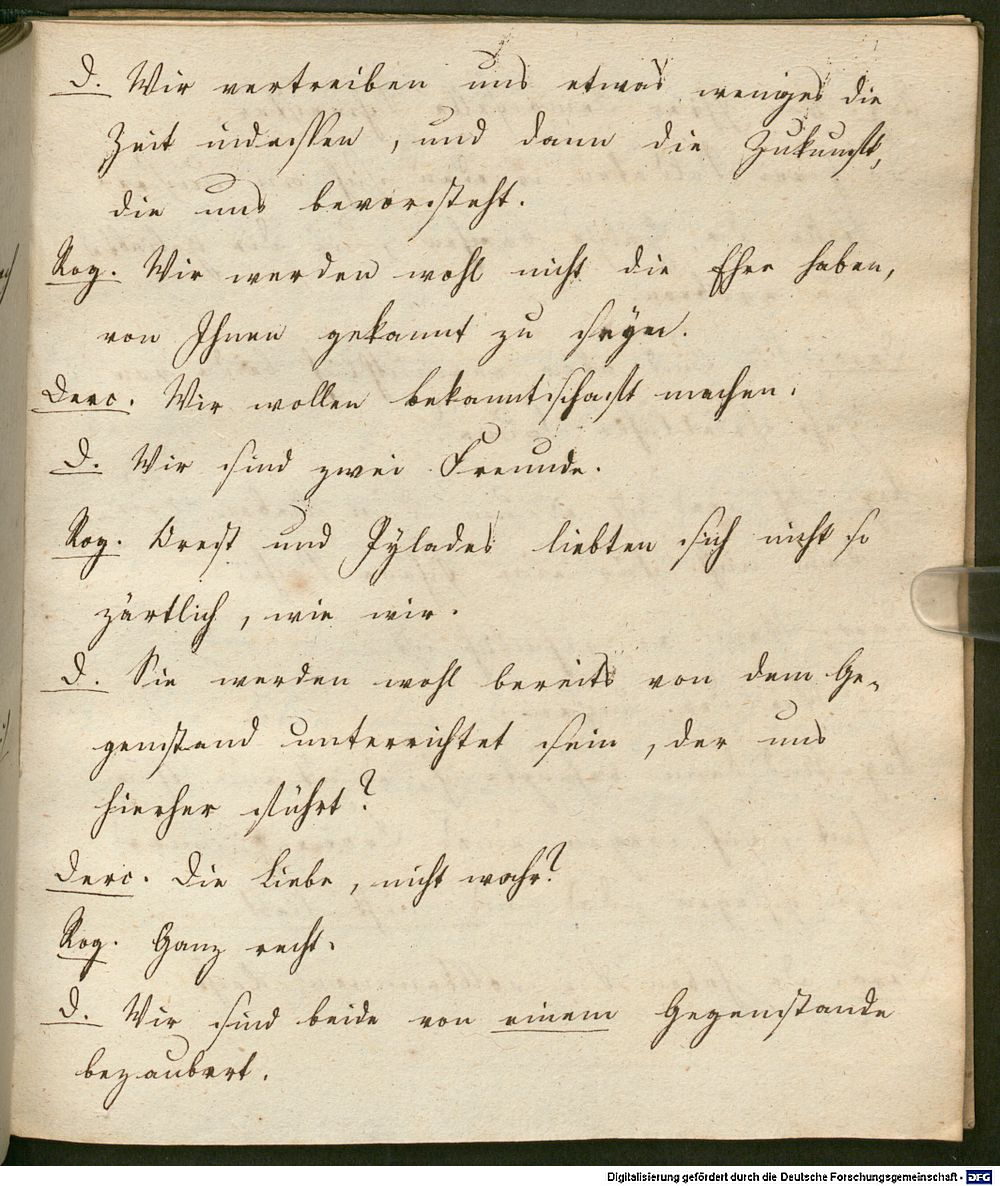 D. Wir vertreiben uns etwas weniges die
Zeit indessen, und dann die Zukunft,
die uns bevorsteht.
Rog. Wir werden wohl nicht die Ehre haben,
von Ihnen gekannt zu seyn.
Derc. Wir wollen bekanntschaft machen.
D. Wir sind zwei Freunde.
Rog. Orest und Pylades liebten sich nicht so
zärtlich, wie wir.
D. Sie werden wohl bereits von dem Ge-
genstand unterrichtet sein, der uns
hierher führt?
Derc. Die Liebe, nicht wahr?
Rog. Ganz recht.
D. Wir sind beide von einem Gegenstande
bezaubert.
Digitalisierung gefördert durch die Deutsche Forschungsgemeinschaft - DFG